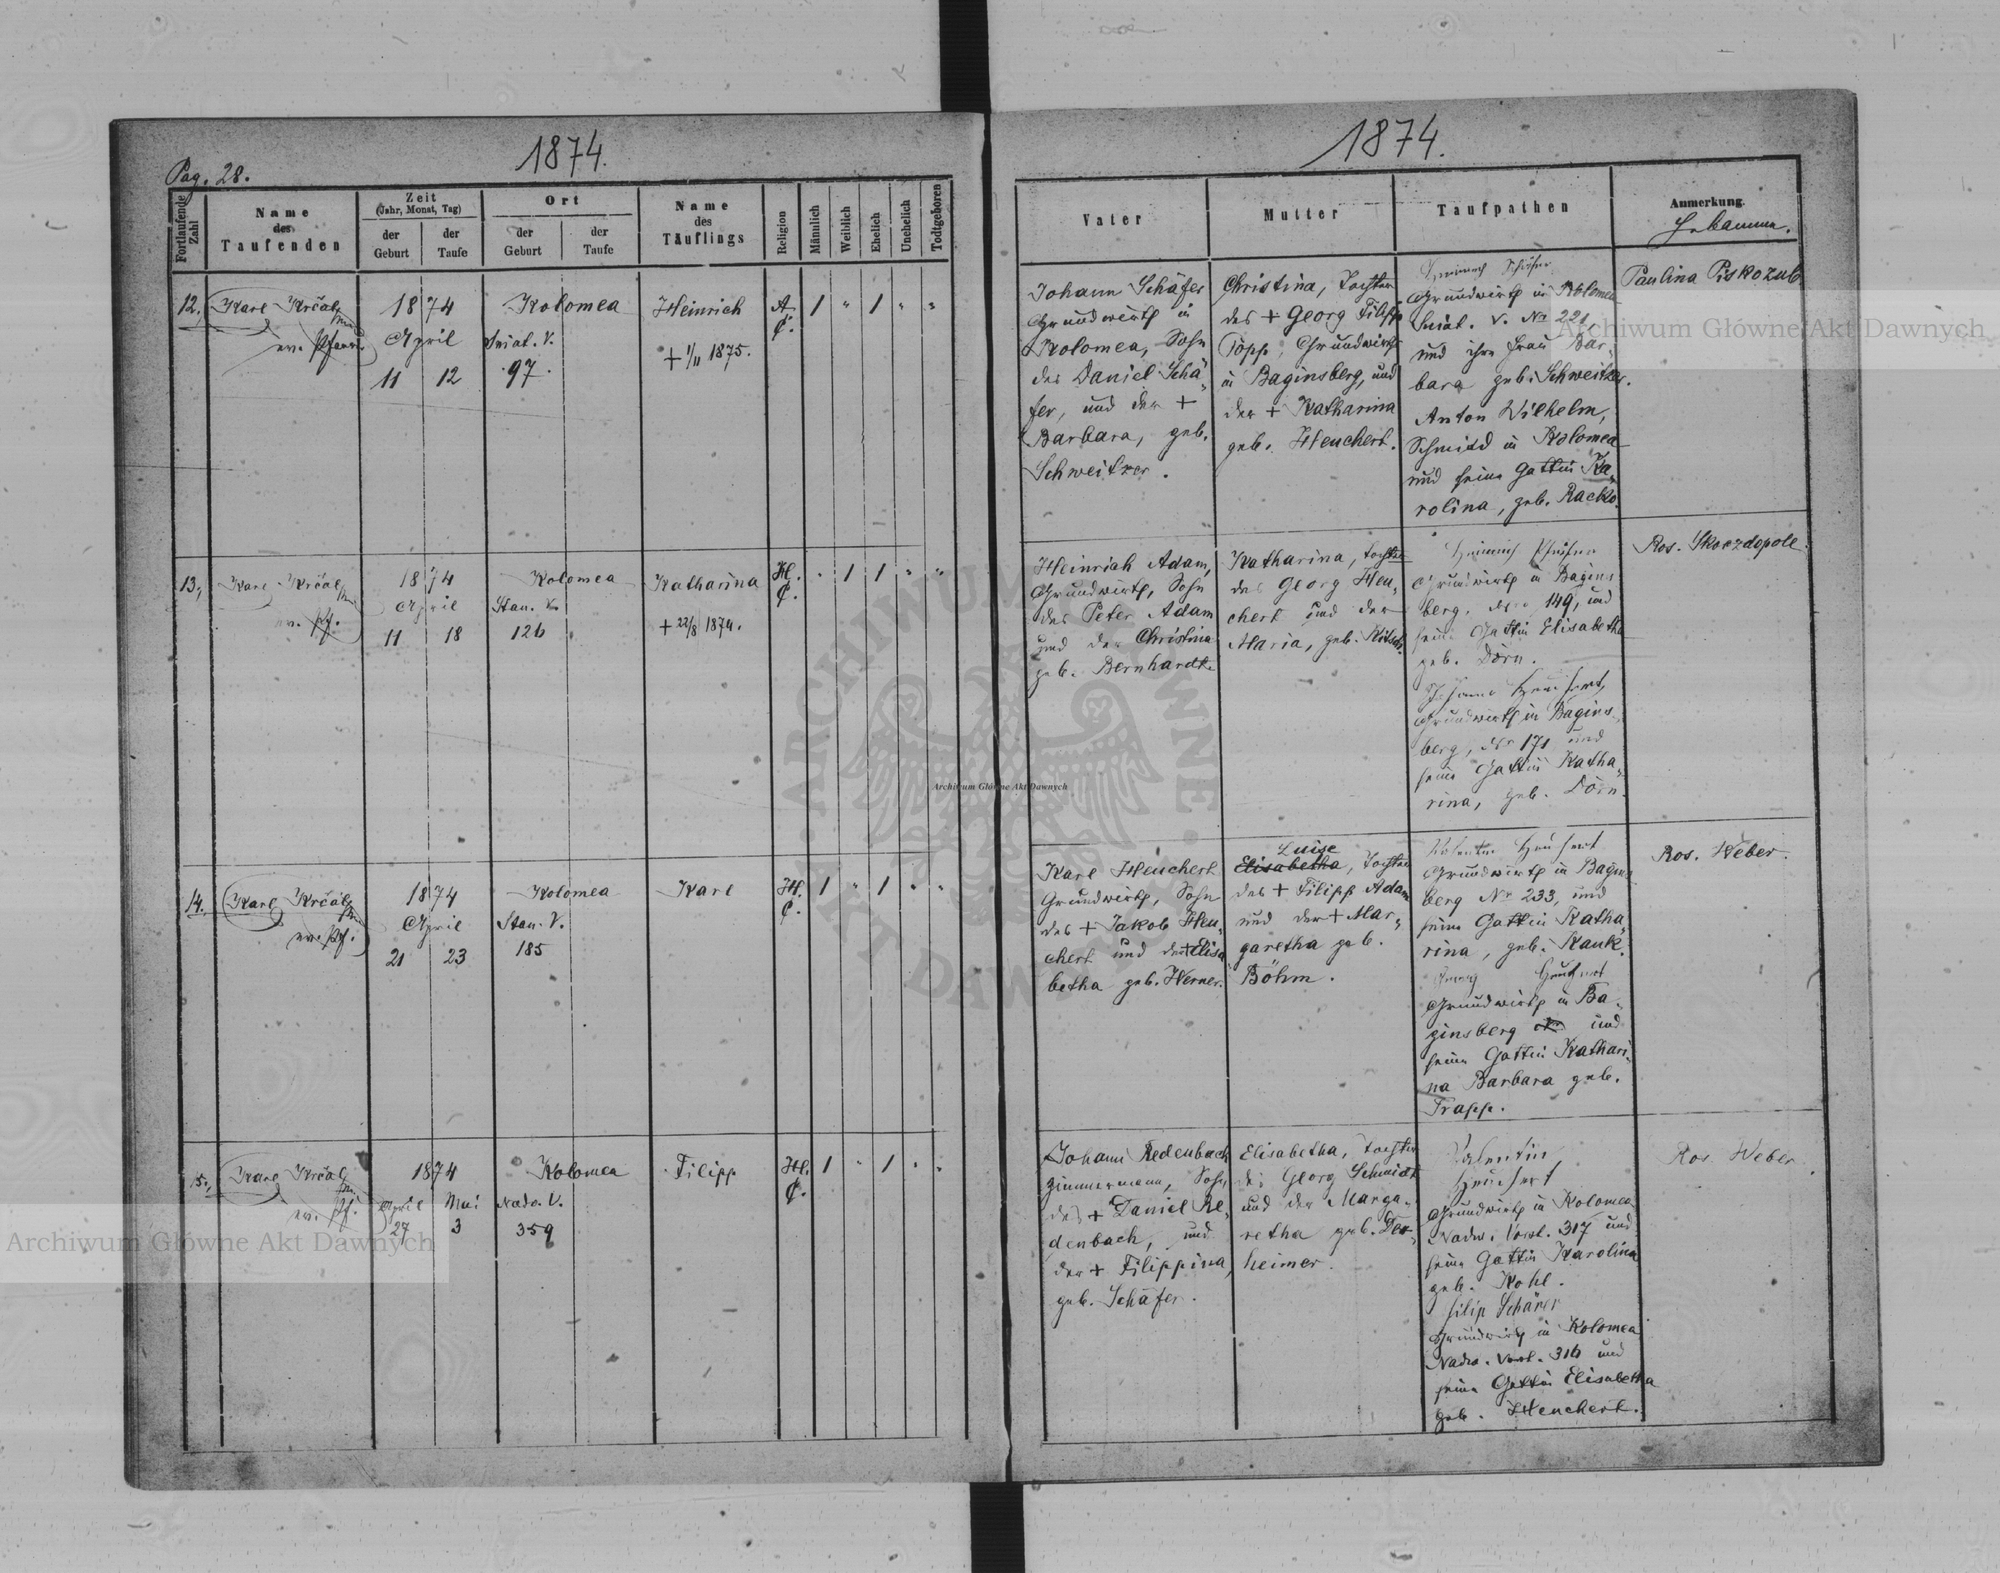 Pag. 28.
1874.
Fortlaufende Zahl
Name des Taufenden
Zeit
(Jahr, Monat, Tag)
der Geburt
der Taufe
Ort
der Geburt
der Taufe
Name des Täuflings
Religion
Männlich
Weiblich
Ehelich
Unehelich
Todtgeboren
12.
Karl Krčal
ev. Pfarr.
1874
April
11 12
Kolomea
Sniat. V.
97.
Heinrich
+ 1/11 1875.
A. C.
1 " 1 " "
13.
Karl Krčal
ev. Pf.
1874
April
11 18
Kolomea
Stan. V.
126
Katharina
+ 22/8 1874.
H. C.
" 1 1 " "
14.
Karl Krčal
ev. Pf.
1874
April
21 23
Kolomea
Stan. V.
185
Karl
H. C.
1 " 1 " "
15.
Karl Krčal
ev. Pf.
1874
April Mai
27 3
Kolomea
Nadw. V.
359
Filipp
H. C.
1 " 1 " "
1874.
Vater
Mutter
Taufpathen
Anmerkung.
Hebamme.
Johann Schäfer
Grundwirth in
Kolomea, Sohn
des Daniel Schä-
fer, und der +
Barbara, geb.
Schweitzer.
Christina, Tochter
des + Georg Filipp
Töpp, Grundwirth
in Baginsberg, und
der + Katharina
geb. Heuchert.
Heinrich Schäfer
Grundwirth in Kolomea
Sniat. V. Nr 221
und ihre Frau Bar-
bara geb. Schweitzer.
Anton Wilhelm,
Schmidd in Kolomea
und seine Gattin Ka-
rolina, geb. Racko.
Paulina Piskozub
Heinrich Adam,
Grundwirth, Sohn
des Peter Adam
und der Christina
geb. Bernhardt
Katharina, Tochter
des Georg Heu-
chert und der
Maria, geb.
Heinrich Pfeifer
Grundwirth in Bagins
berg, Nr 149, und
seine Gattin Elisabetha
geb. Dörn.
Johann Heuchert,
Grundwirth in Bagins-
berg, Nr 171 und
seine Gattin Katha-
rina, geb. Dörn.
Ros. Skoczdopole.
Karl Heuchert
Grundwirth, Sohn
des + Jakob Heu-
chert und der + Elisa
betha geb. Werner.
Luise
Elisabetha, Tochter
des + Filipp Adam
und der + Mar-
garetha geb.
Böhm.
Valentin Heuchert
Grundwirth in Bagins
berg Nr 233, und
seine Gattin Katha-
rina, geb. Kauk.
Georg Heuchert
Grundwirth in Ba-
ginsberg und
seine Gattin Kathari-
na Barbara geb.
Trapp.
Ros. Weber.
Johann Redenbach
Zimmermann, Sohn
des + Daniel Re-
denbach, und
der + Filippina,
geb. Schäfer.
Elisabetha, Tochter
des Georg Schmidt
und der Marga-
retha geb.
heimer.
Valentin
Heuchert
Grundwirth in Kolomea
Nadw. Vorst. 317 und
seine Gattin Karolina
geb. Kohl.
Filip Schärer
Grundwirth in Kolomea
Nadw. Vorst. 316 und
seine Gattin Elisabetha
geb. Heuchert.
Ros. Weber.
Archiwum Główne Akt Dawnych
Archiwum Główne Akt Dawnych
Archiwum Główne Akt Dawnych